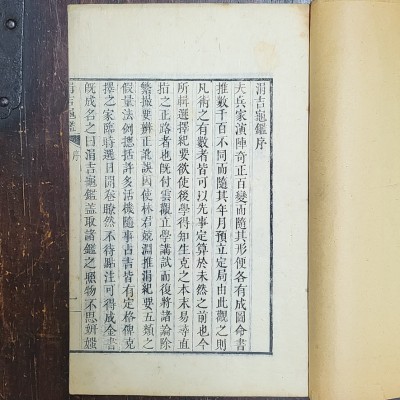 涓吉龜鑑序
夫兵家演陣奇正百變而隨其形便各有成圖命書
推數千百不同而隨其年月預立定局由此觀之則
凡術之有數者皆可以先事定算於未然之前也今
所輯選擇紀要欲使後學得知生克之本末易奇直
指之正路者也既付雲觀立學講試而復將諸論除
繁撮要辨正訛誤因使林君兢淵推涓紀要五類之
假量法例摠括許多活機隨事占吉皆有定格俾克
擇之家臨時選日開卷瞭然不待點注可得成全書
既成名之曰涓吉龜鑑盖取諸鑑之照物不思妍媸
涓吉龜鑑 序 一